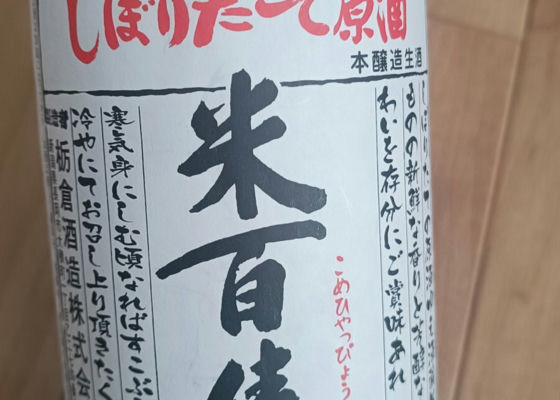 しぼりたて原酒
本醸造生酒
しぼりたての原酒
ものの新鮮な香りと芳醇な
わいを存分にご賞味あれ
こめひゃっぴょう
米百俵
寒気身にしむ頃なればすこぶ
冷やにてお召し上り頂きたく
栃倉酒造株式会